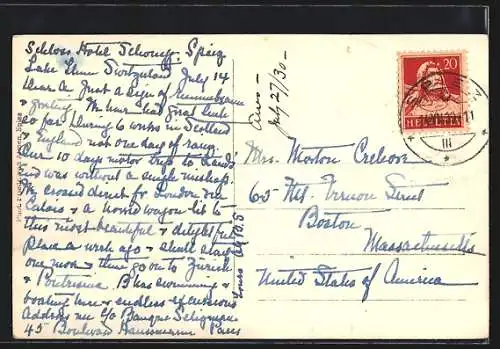 Schloss Hotel Schonegg. Spiez
Lake Thun Switzerland July 14
Dear A Just a sign of remembrance
& greeting. We have had great luck
so far. During 6 weeks in Scotland
& England not one day of rain.
Our 10 days motor trip to Lands
End was without a single mishap.
We crossed direct fr. London via
Calais & a wagon lit to
this most beautiful & delightful
place a week ago & shall stay
one more & then go on to Zürich
& Pontresina. B has swimming &
boating here & endless excursions
Address me c/o Banque Seligman
45 Boulevard Haussmann Paris
Yours
Ans—
July 27/30—
Mrs. Morton Crehore
65 Mt. Vernon Street
Boston
Massachusetts
United States of America
20
HELVETIA
SPIEZ
III